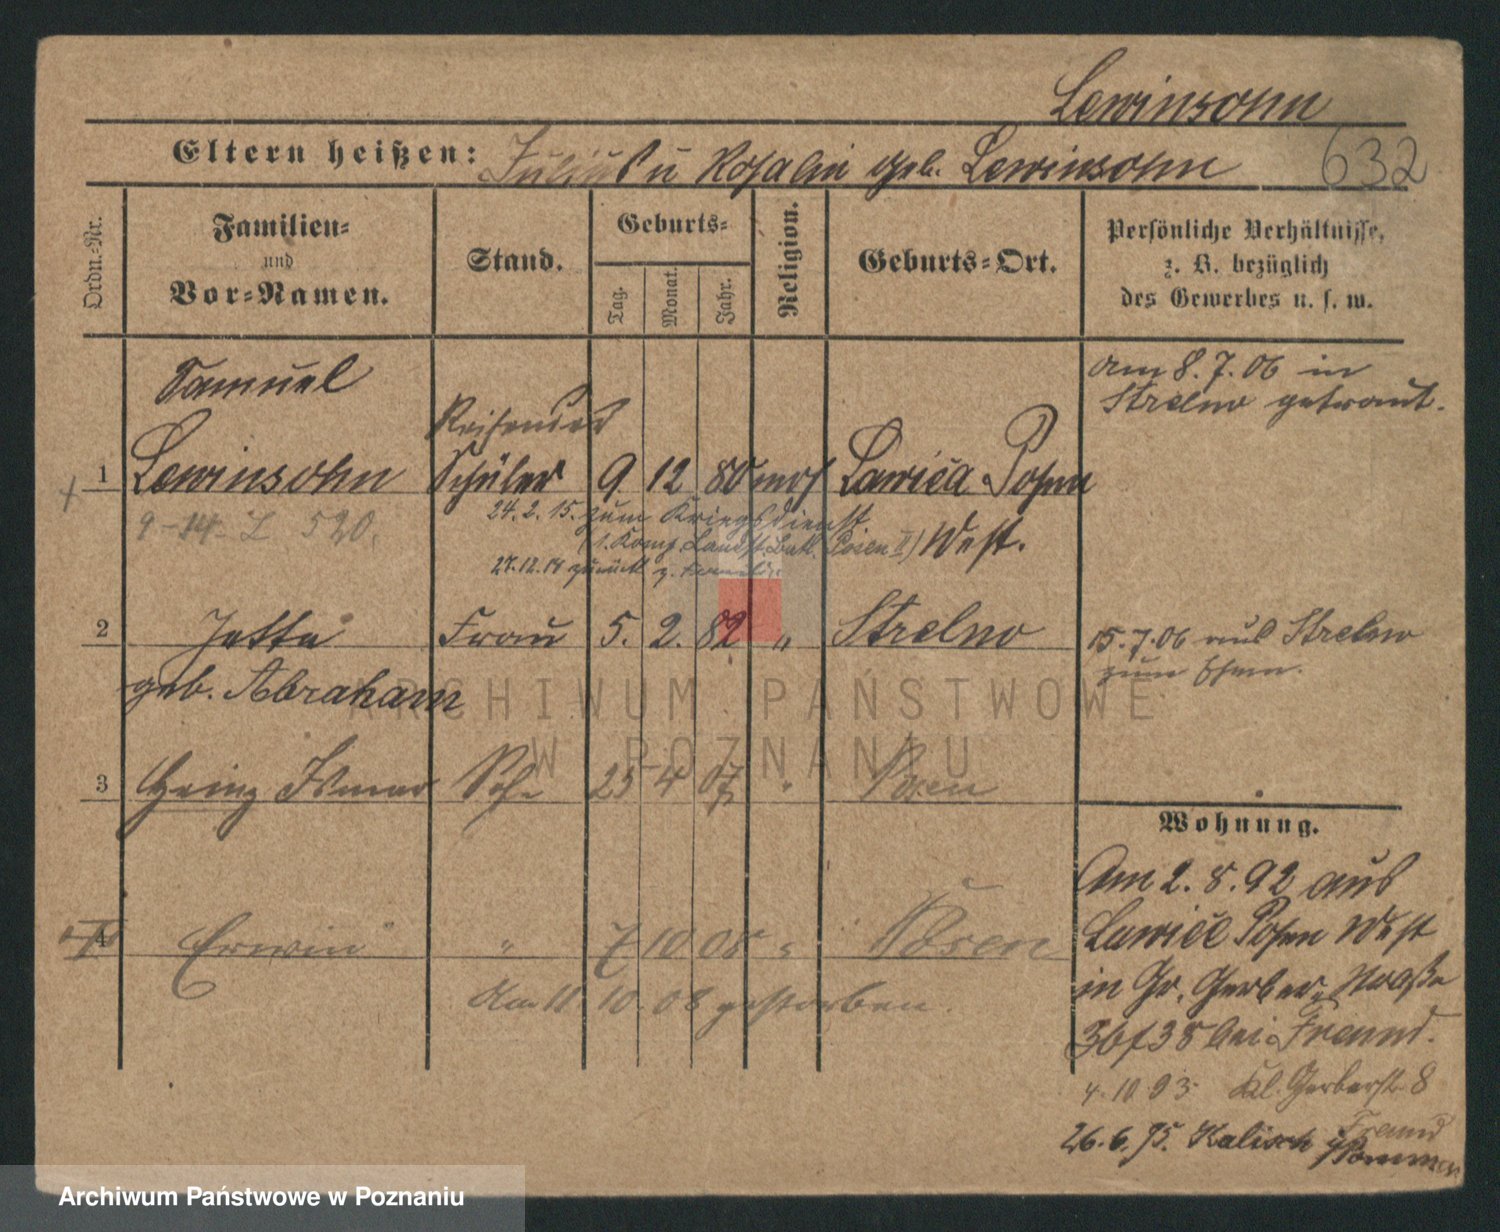 Lewinsohn
632
Eltern heißen: Julius u Rosalie geb. Lewinsohn
Ordn.-Nr.
Familien-
und
Vor-Namen.
Stand.
Geburts-
Tag.
Monat.
Jahr.
Religion.
Geburts-Ort.
Persönliche Verhältnisse,
z. B. bezüglich
des Gewerbes u. s. w.
Samuel
Reisender
am 8.7.06 in
Strelno getraut.
1 Lewinsohn Schüler 9. 12 80 mos Lawica Posen
West.
9-14- L 520.
24.2.15. zum Kriegsdienst
(1. Komp. Landst. Batl. Posen II)
27.12.18 zurück z. Familie
2 Jette Frau 5. 2. 82 " Strelno
geb. Abraham
15.7.06 aus Strelno
zum Ehem.
3 Heinz Ismar Sohn 25 4 07 " Posen
4 Erwin " 7 10 08 " Posen
Am 11. 10. 08 gestorben.
Wohnung.
Am 2.8.92 aus
Lawica Posen West
in Gr. Gerber-Straße
36/38 bei Freund.
4.10.93 Kl. Gerberstr. 8
Freund
26.6.95. Kalisch
ARCHIWUM PAŃSTWOWE
W POZNANIU
Archiwum Państwowe w Poznaniu